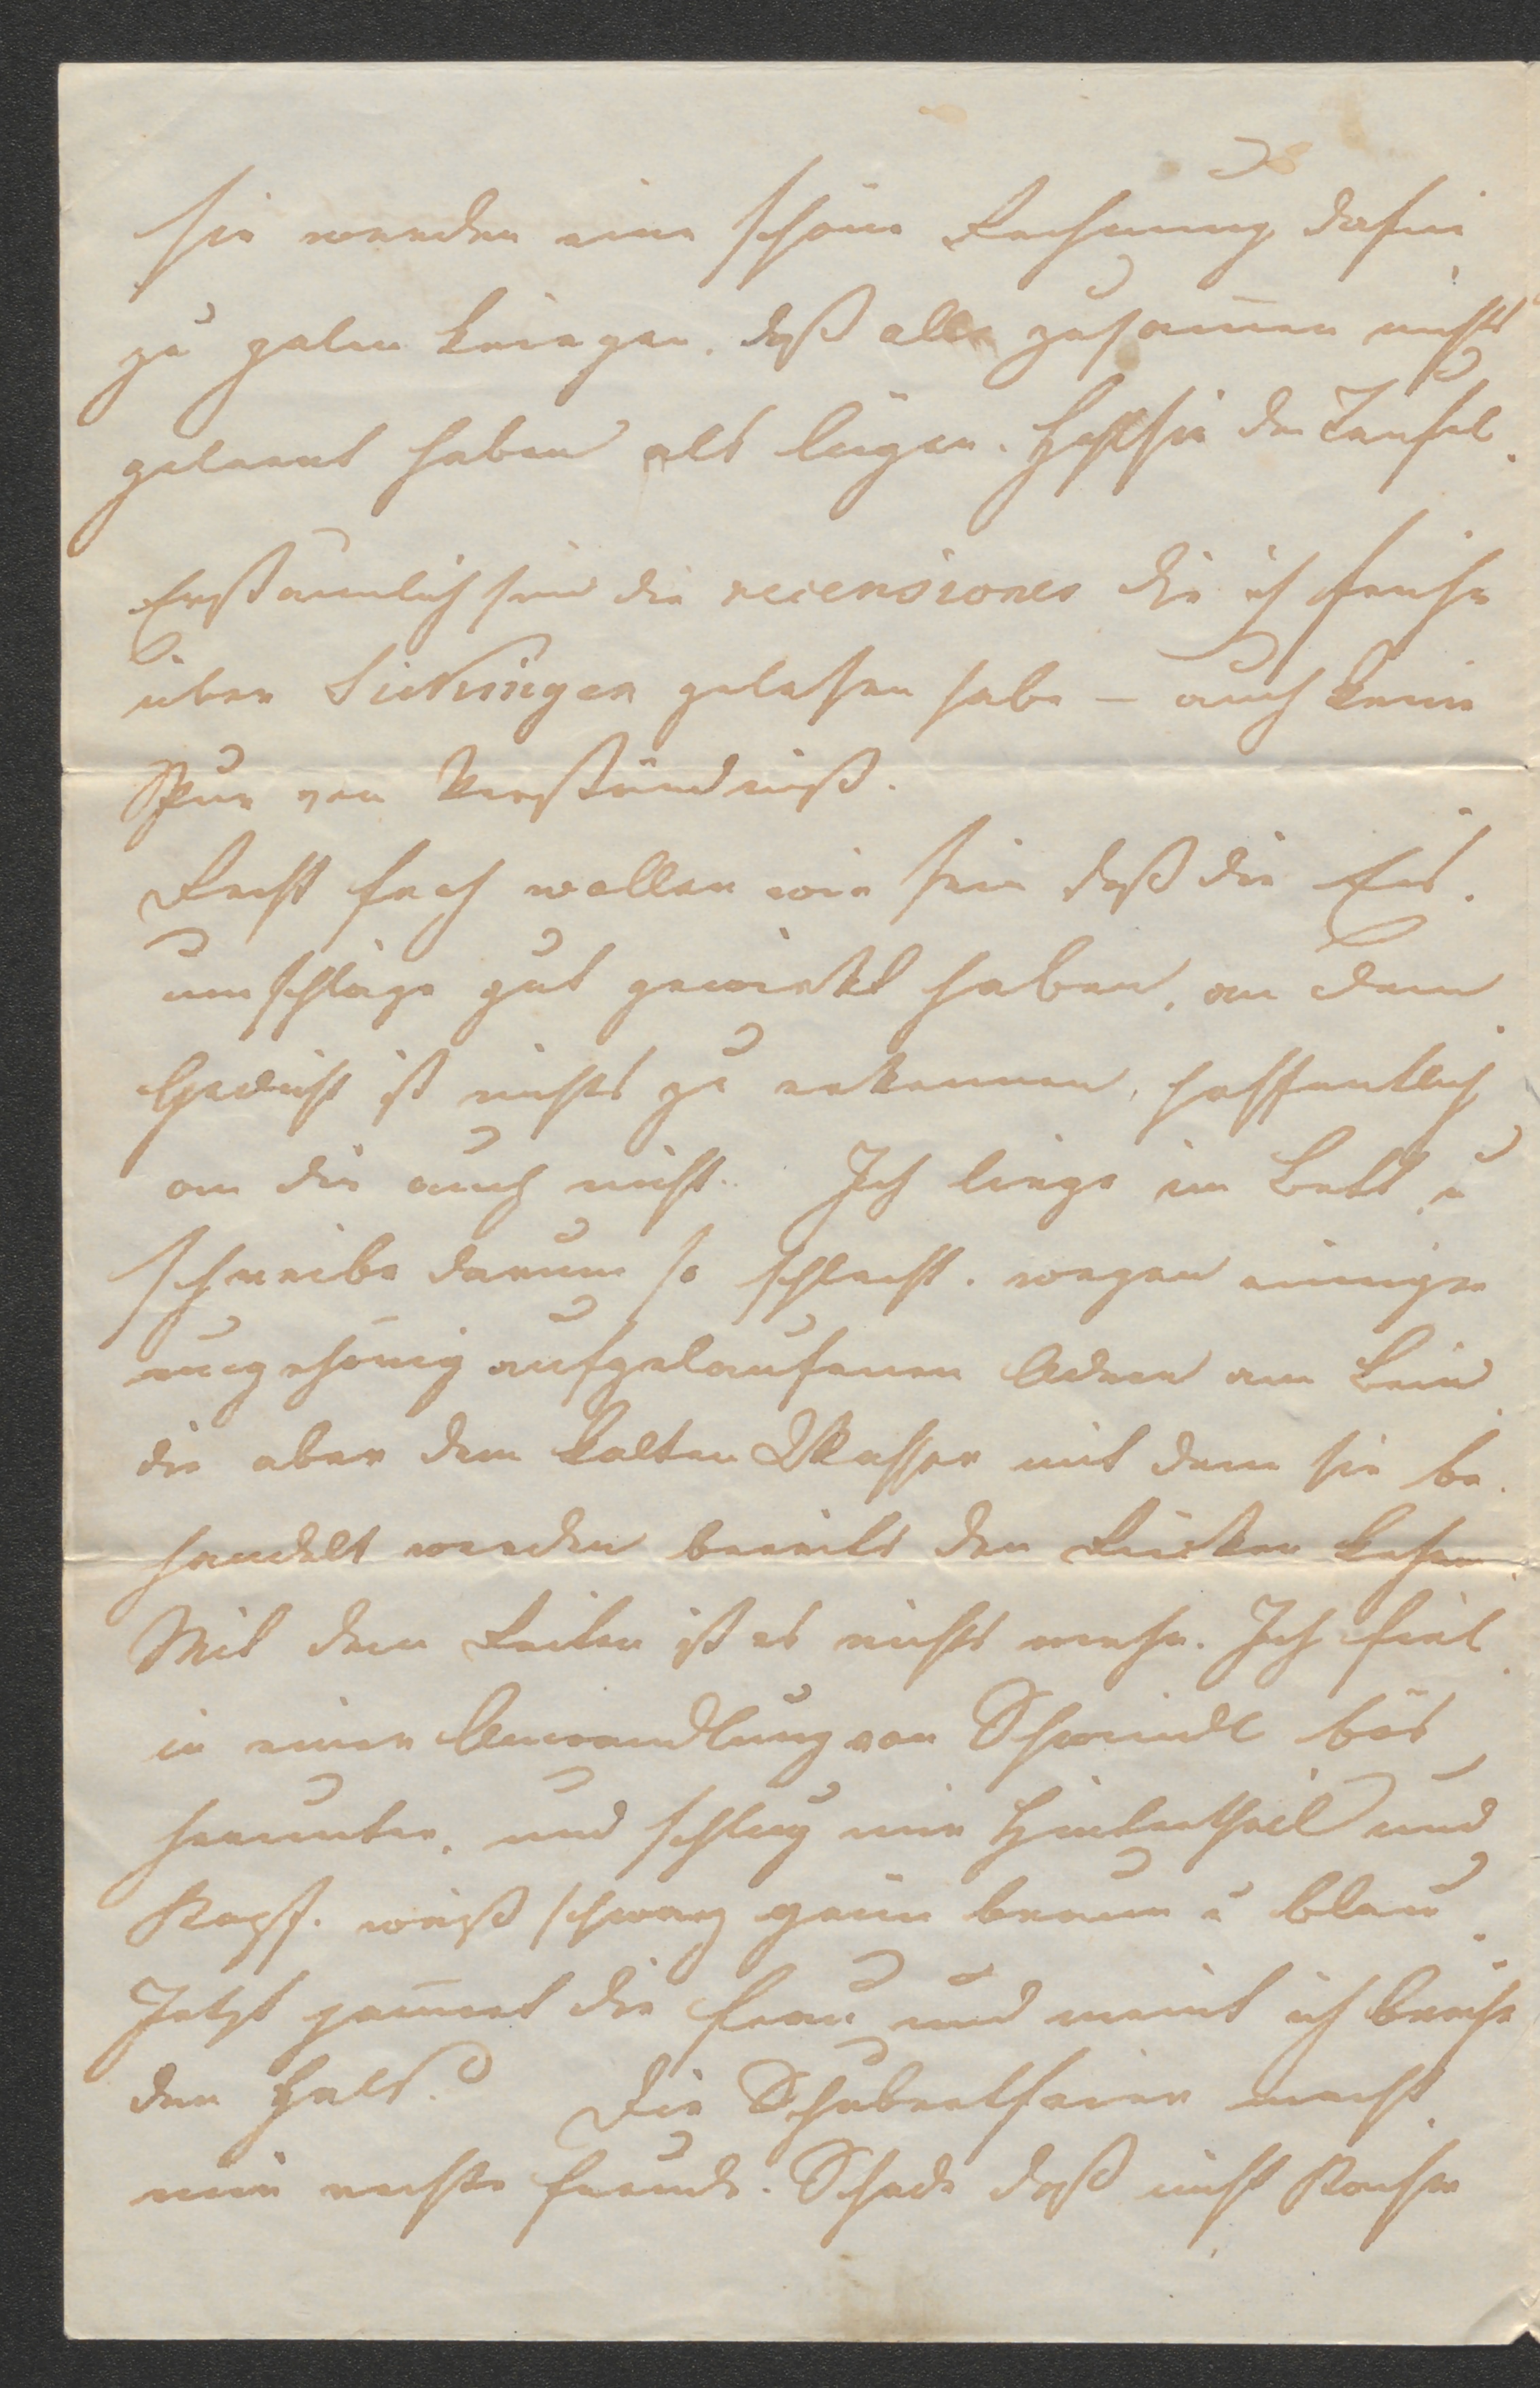 sie werden eine schöne Rechnung dafür
zu zalen kriegen. daß alle zusam̄en nichts
gelernt haben als lügen. Hohl sie der Teufel.
Erstaunlich sind die recensiones die ich früher
über Sickingen gelesen habe – auch keine
Spur von Verständniß.
Recht froh wollen wir sein daß die Eis-
umschläge gut gewirkt haben, an dem
Gedicht ist nichts zu erkennen, hoffentlich
an dir auch nicht. Ich liege im Bett u
schreibe darum so schlecht. wegen einiger
ungehörig aufgelaufenen Adern am Bein
die aber dem kalten Wasser mit dem sie be-
handelt werden bereits den Rücken kehren.
Mit dem Reiten ist es nichts mehr. Ich fiel
in einer Anwandlung von Schwindl bös
herunter, und schlug mir Hintertheil und
Kopf. weiß schwarz grün braun u blau.
Jetzt jam̄ert die Frau und meint ich breche
den Hals. Die Schubertfeier macht
mir rechte Freude. Schade daß nicht